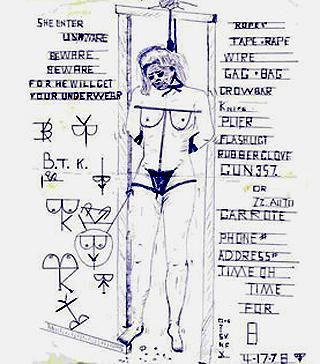 SHE ENTER
UNAWARE
BEWARE
BEWARE
FOR HE WILL GET
YOUR UNDERWEAR
B.T.K.
ROPE
TAPE•RAPE
WIRE
GAG•BAG
CROWBAR
KNIFE
PLIER
FLASHLIGT
RUBBER GLOVE
GUN 357.
OR
22. AUTO
GARROTE
PHONE #
ADDRESS #
TIME OH
TIME
FOR
4-17-78